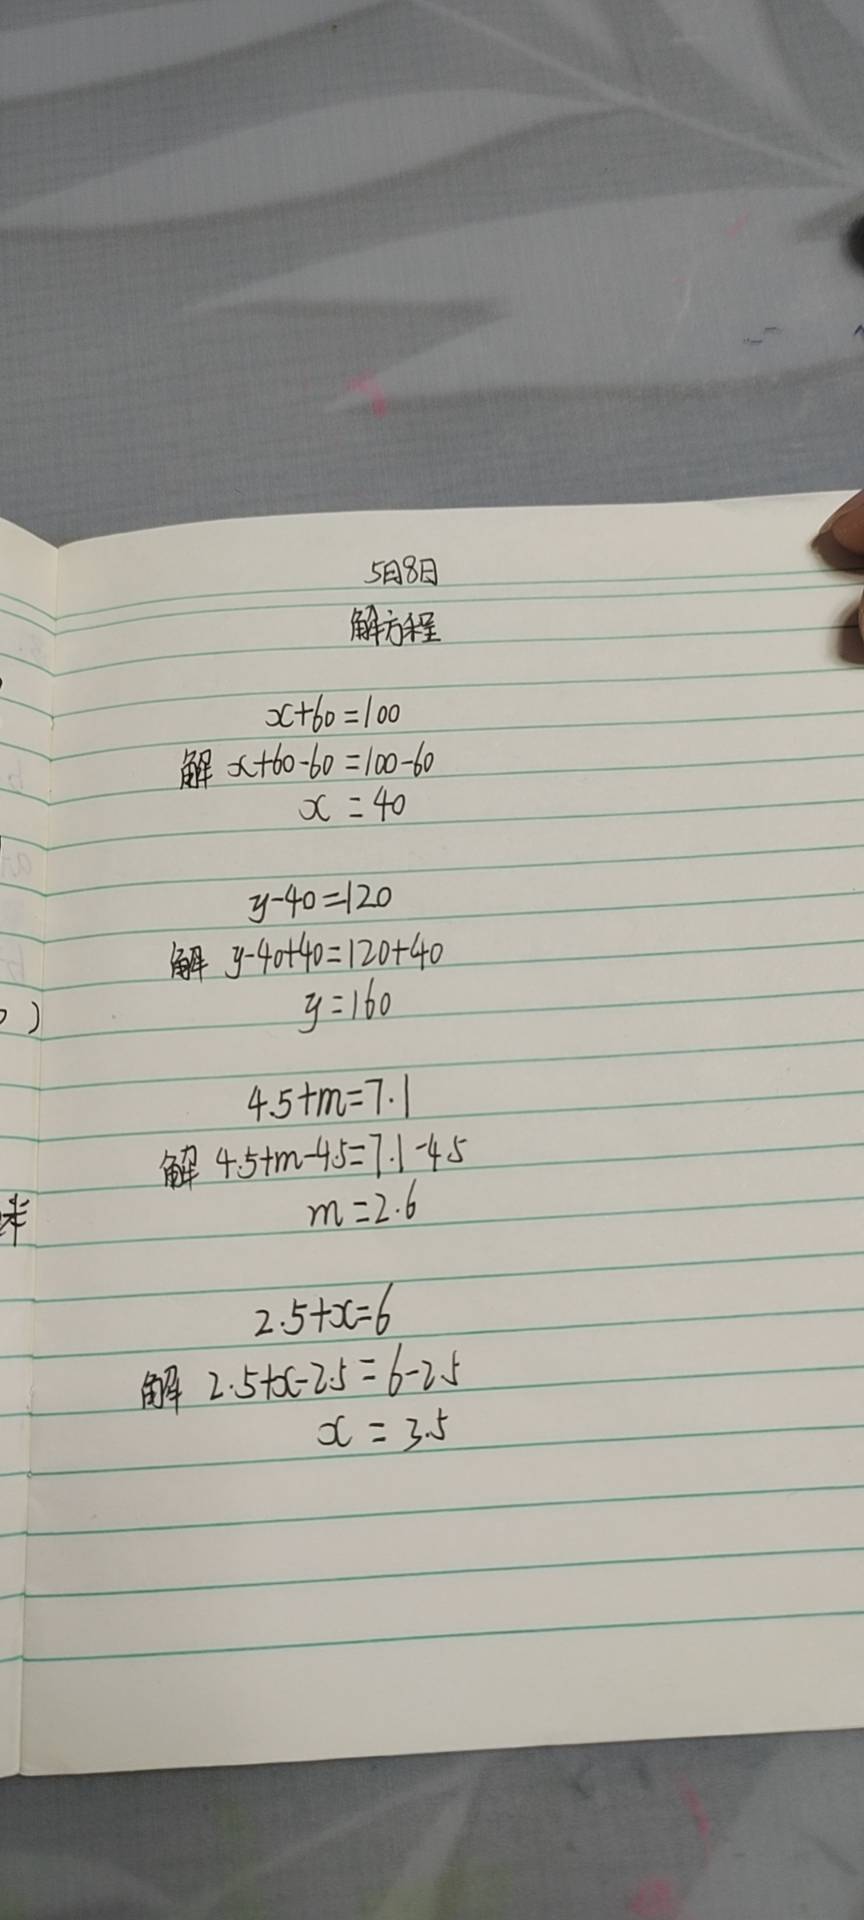 5日8日
解方程
x+60=100
解 x+60-60=100-60
x=40
y-40=120
解 y-40+40=120+40
y=160
4.5+m=7.1
解 4.5+m-4.5=7.1-4.5
m=2.6
2.5+x=6
解 2.5+x-2.5=6-2.5
x=3.5